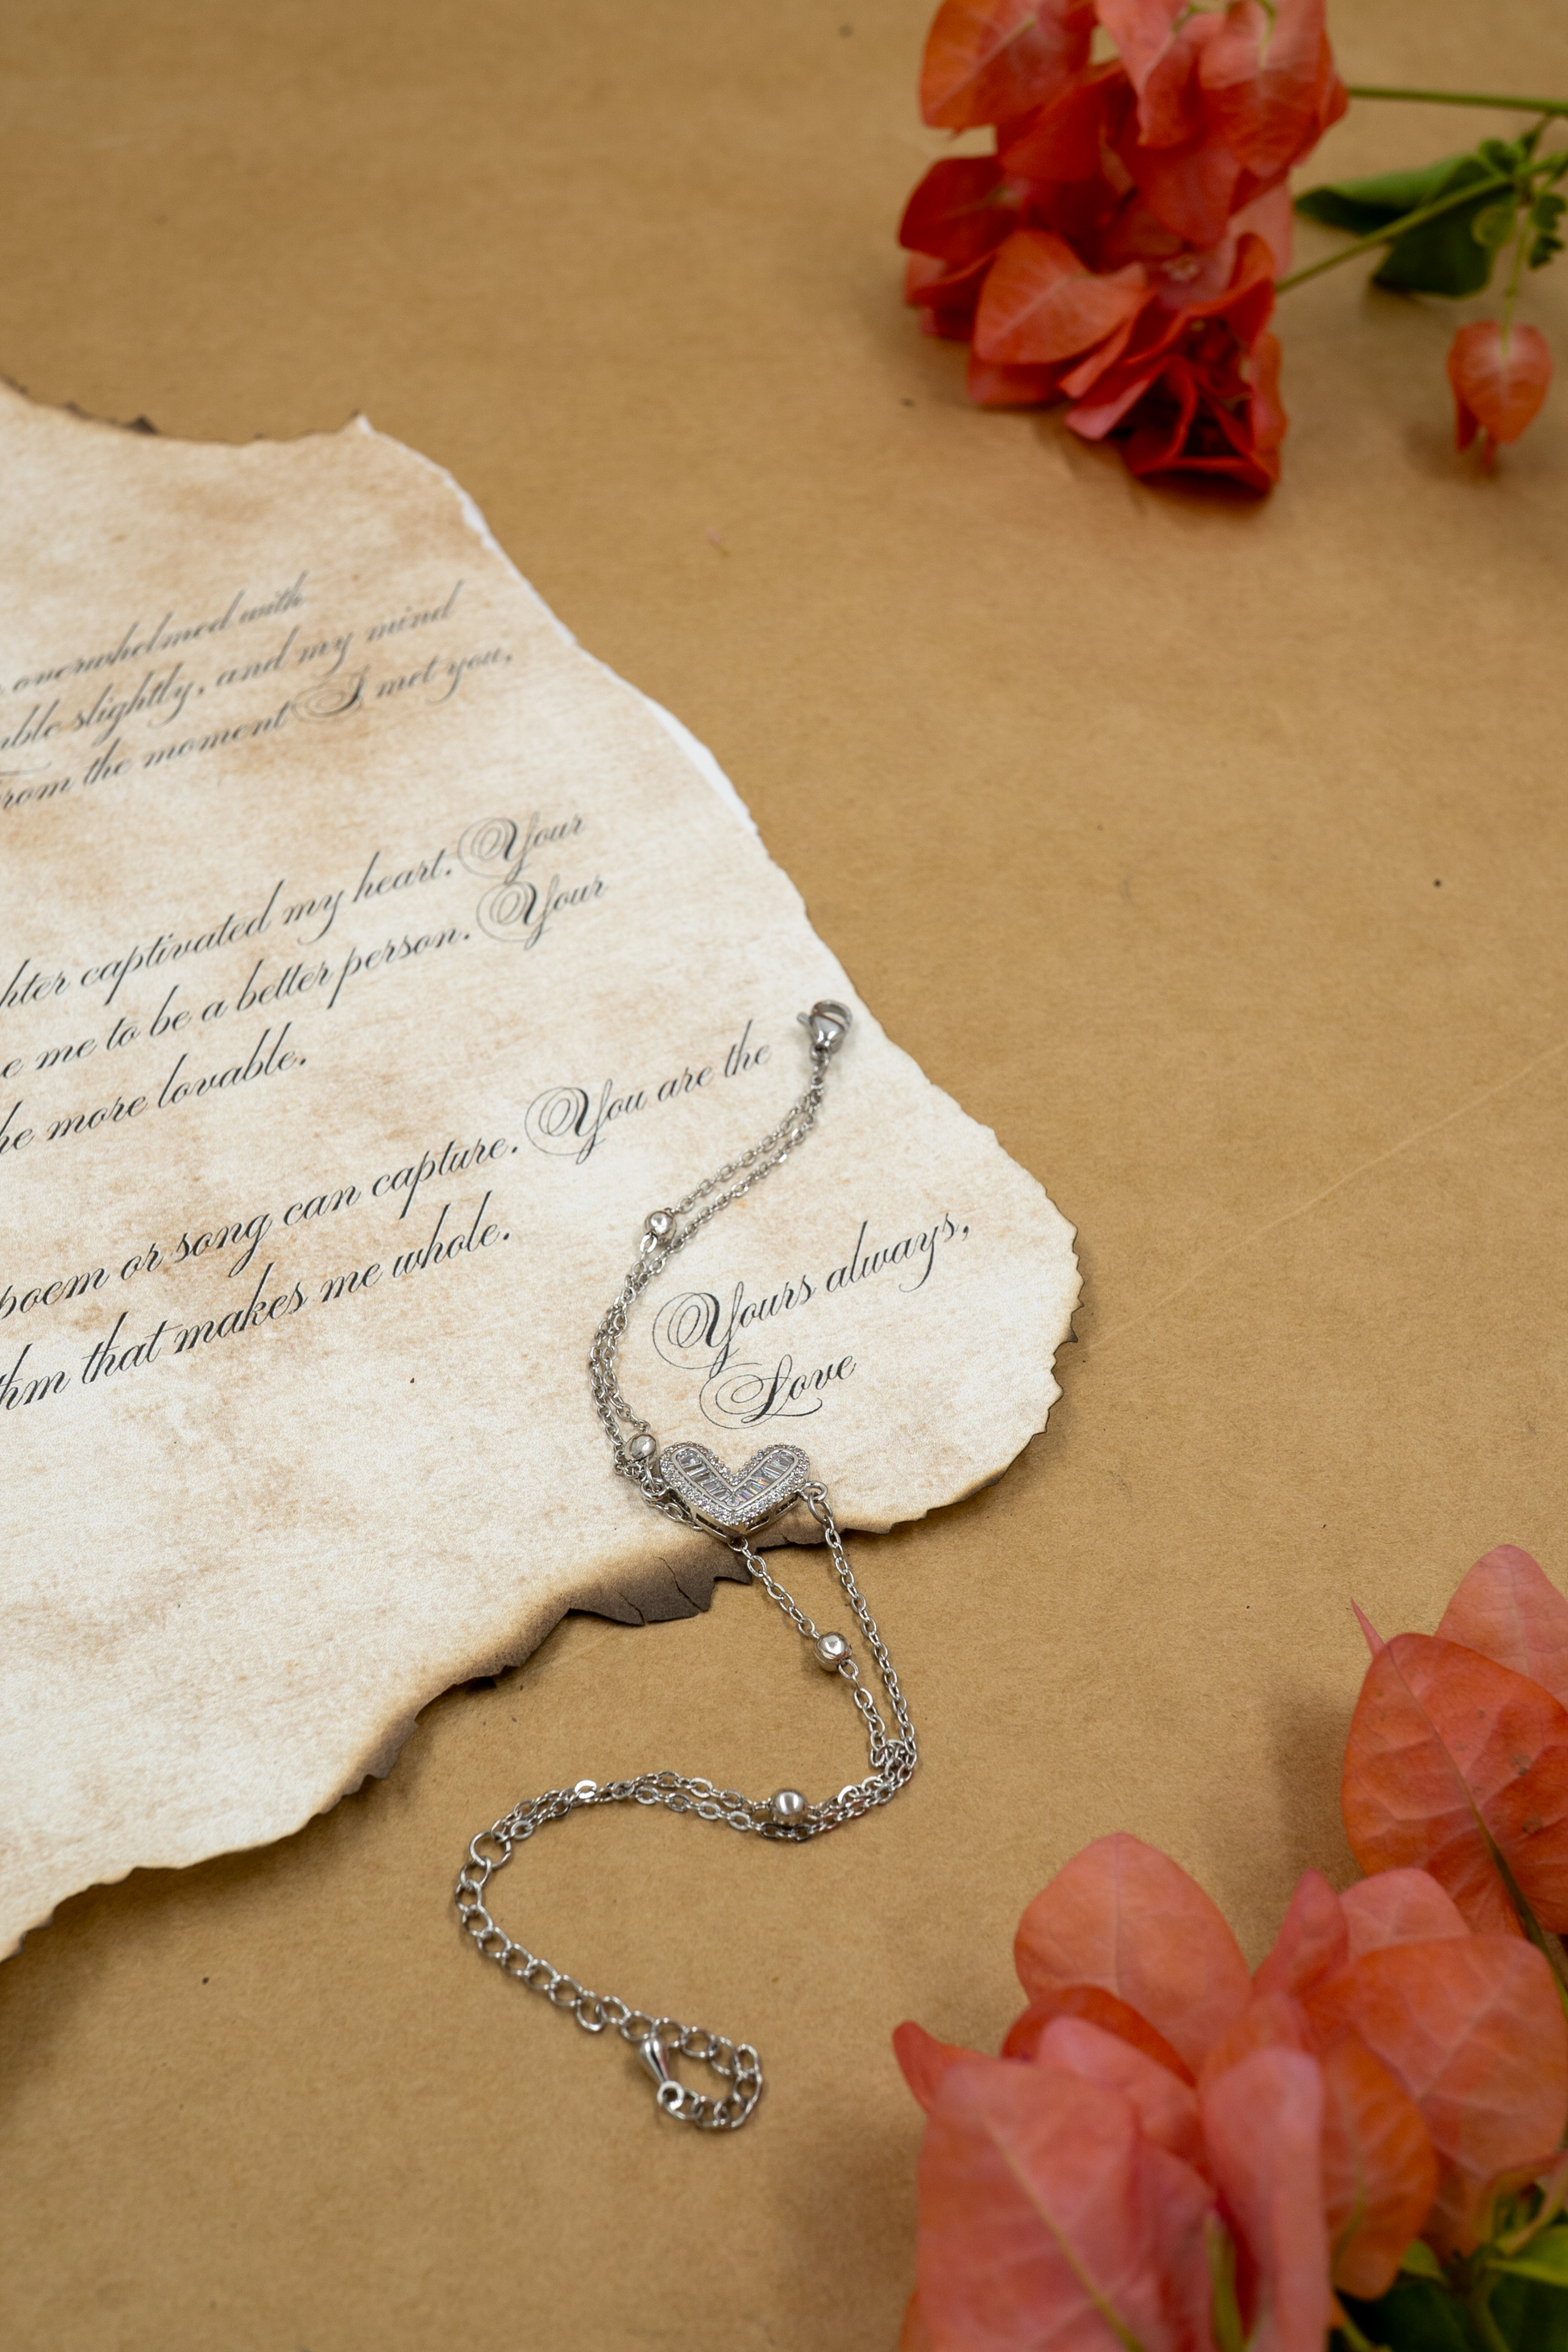 overwhelmed with
slightly, and my mind
from the moment I met you,
captivated my heart. Your
me to be a better person. Your
more lovable.
poem or song can capture. You are the
that makes me whole.
Yours always,
Love